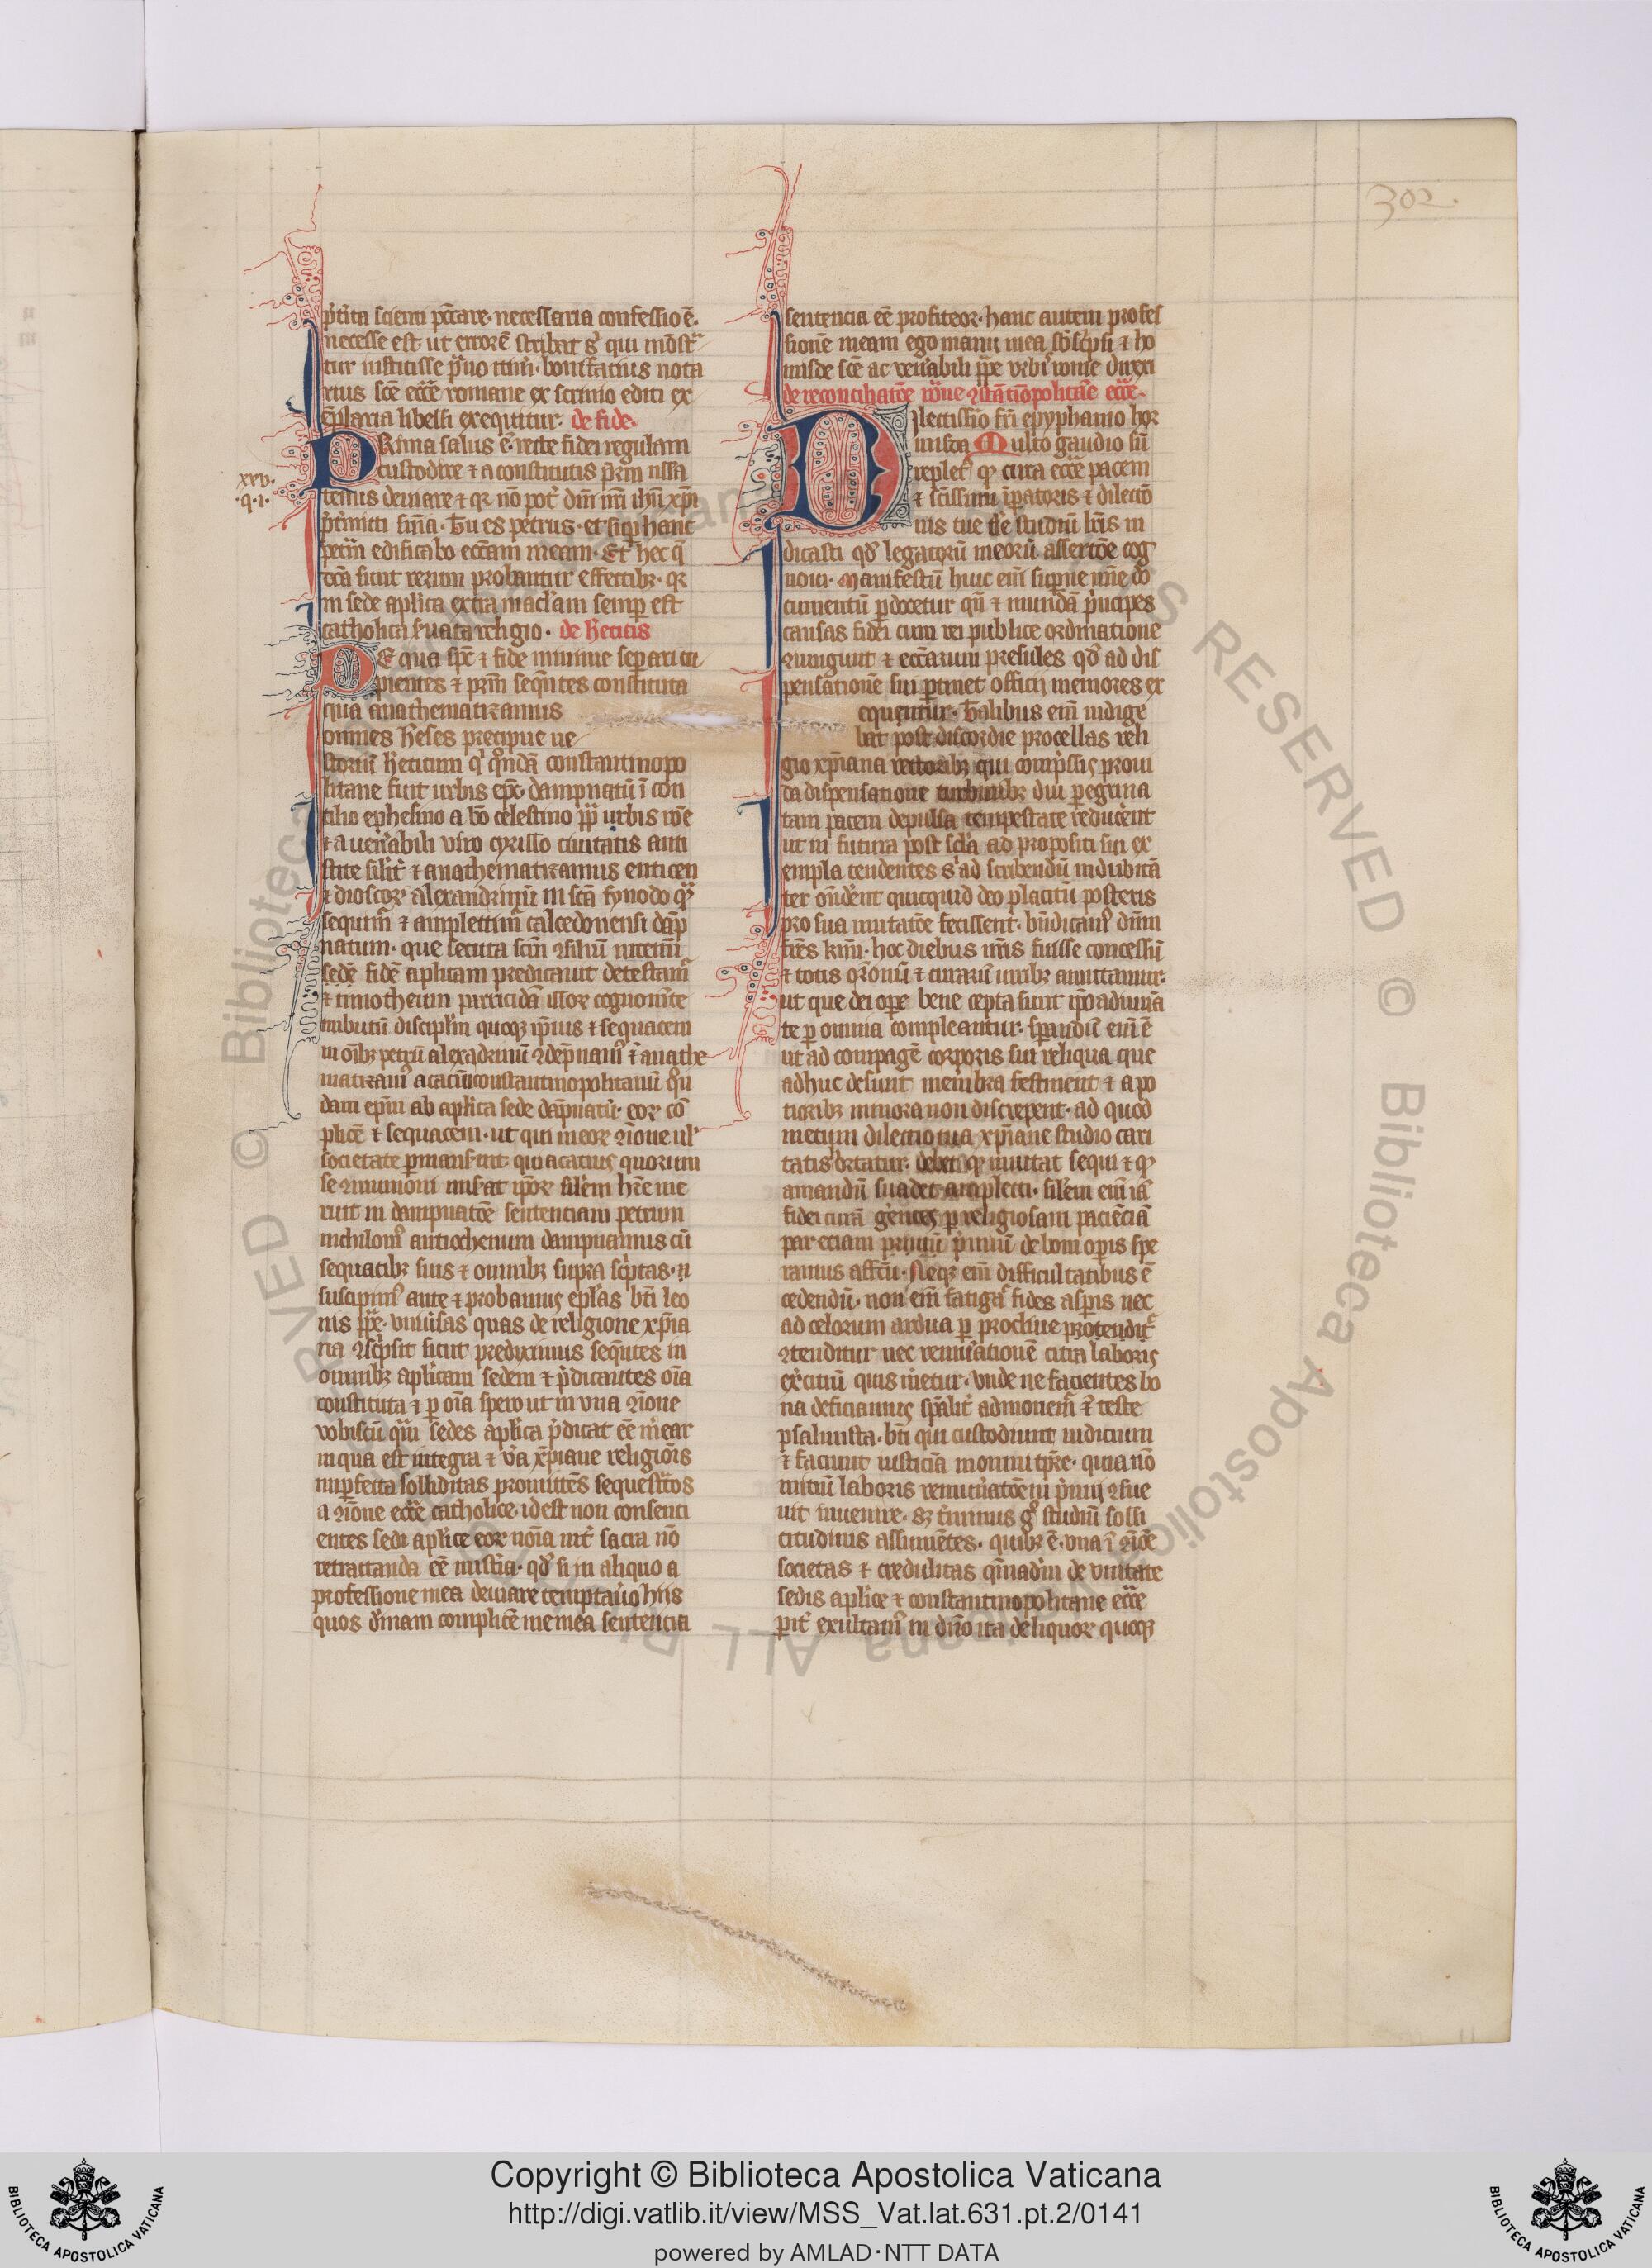 302.
p̄tita scienti pctare· necessaria confessio ē·
necesse est ut errorē scribat
tur institisse bonifatius nota
rius scē eccē romane ex scrinio editi ex
emplaria libelli exequitur· de fide·
PRima salus ē· recte fidei regulam
custodire ⁊ a constitutis pr̄m
xxv.
.q.i.
tenus deviare ⁊ qr nō pot dn̄i nr̄i ihū xpi
snīa· Tu es petrus· et sup hanc
petrā edificabo eccām meam· Et hec q̄
dcā sunt rerum probantur effectibz· qr
in sede aplica extra maclam semp est
catholica suata religio· de hetitis
DE qua spē ⁊ fide minime separari cu
pientes ⁊ pr̄m seqn̄tes constituta
qua anathematizamus
omnes heses precipue ne
storiū hetitum q̄ qn̄dā constantinopo
litane fuit urbis epc̄ dampnatū ī con
cilio ephesino a bō celestino pp̄ urbis rōe
⁊ a ven̄abili viro cyrillo civitatis anti
stite silit ⁊ anathematizamus euticen
⁊ dioscor alexandrinū in scā synodo q̄
sequim̄ ⁊ amplectim̄ calcedonensi dāp
natum· que secuta scm̄ ɔsiliū nicenū
fidē aplicam predicavit detestam̄
⁊ timotheum parricidā
discipl̄m quoqz ipsius ⁊ sequacem
in oībz petrū alexādrinū
matizam̄ acaciū constantinopolitanū qn̄
dam ep̄m ab aplica sede dāpnatū· eor cō
plicē ⁊ sequacem· ut qui in eor ɔione ul
societate pmans̄int· qui acatius quorum
se ɔmunioni miscat ipor silem hr̄e me
ruit in dampnatōe sententiam petrum
nichilom̄ antiochenum dampnamus cū
sequacibz suis ⁊ omnibz supra sc̄ptas·
suscipim̄ ante ⁊ probamus epl̄as bti leo
nis pp̄e· univ̄sas quas de religione xpia
na ɔscpsit sicut prediximus seqn̄tes in
omnibz aplicam sedem ⁊ p̄dicantes oīa
constituta ⁊ p oīa spero ut in una ɔione
vobiscū quā sedes aplica p̄dicat eē mear
in qua est integra ⁊ v̄a xp̄iane religiōis
solliditas promittēs sequestratos
a ɔione ecc̄e catholice· idest non consenti
entes sedi aplice eor noīa int sacra nō
retractanda eē mist̄ia· qd̄ si in aliquo a
professione mea deviare temptav̄o hiis
quos dn̄nam complicē me mea sentencia
sentencia eē profiteor· hanc autem profes
sionē meam ego manu mea sb̄scpsi ⁊ ho
misde scē ac ven̄abili pp̄e urbis rome duxi
de reconciliatōe rōne ɔstātiōpolitāe ecc̄e·
DIlectissīo fr̄i epyphanio hor
misda Multo gaudio sū
replet q̄ circa ecc̄e pacem
⁊ scīssimi īpatoris ⁊ dilectō
nis tue studiū lr̄is in
dicasti qd̄ legatorū meorū assertōe cog
noui· Manifestū huic eī supne īne do
cumentū pdocetur qn̄ ⁊ mundā p̄ncipes
causas fidei cum rei publice ordinatione
ɔiungunt ⁊ eccārum presules qd̄ ad dis
pensationē sui ptinet officij memores ex
equentur· Talibus eī indige
bat post discordie procellas reli
gio xpiana rectoribz qui comp̄ssis provi
da dispensatione turbinibz diu pegrina
tam pacem depulsa tempestate reducērent
ut in futura post scl̄a ad propositi sui ex
empla tendentes s̄ ad scribendū indubitā
ter ōnd̄ent quicquid deo placitū posteris
pro sua imitatōe fecissent· bn̄dicam̄ dn̄m
fr̄es km̄· hoc diebus nr̄is fuisse concessū
⁊ totis or̄onū ⁊ curarū viribz amittamur·
ut que dei ope bene cepta sunt ip̄o adiuvā
te p omnia compleantur· spandū eī ē
ut ad compagē corporis sui reliqua que
adhuc desunt membra festinent ⁊ a po
tioribz minora non discrepent· ad quod
metum dilectio tua xpiane studio cari
tatis ortatur· debet qz imitat sequi ⁊ q̄
amandū suadet amplecti· silem eī iā
fidei curā gentes p religiosam paciēciā
par eciam premiū primū de boni opis spe
ramus affectu· Neqz eī difficultatibus ē
cedendū· non eī fatigat fides aspis nec
ad celorum ardua p proclive protendit
ɔtenditur nec remunationē citra laboris
excitiū quis metur· Unde ne facientes bo
na deficiamus spālit admonem̄ ⁊ teste
psalmista· bti qui custodiunt iudicium
⁊ faciunt iusticiā in omni tpre· quia nō
initiū laboris remuneratōem premij ɔsue
uit invenire· sz t̄minus g° studiū solli
citudinis assumētes· quibz ē· una ī ɔiōe
societas ⁊ credulitas qn̄adm̄ de unitate
sedis aplice ⁊ constantinopolitane ecc̄e
pit exultam̄ in dn̄o ita de liquor quoqz
Copyright © Biblioteca Apostolica Vaticana
http://digi.vatlib.it/view/MSS_Vat.lat.631.pt.2/0141
powered by AMLAD·NTT DATA
BIBLIOTECA APOSTOLICA VATICANA
BIBLIOTECA APOSTOLICA VATICANA